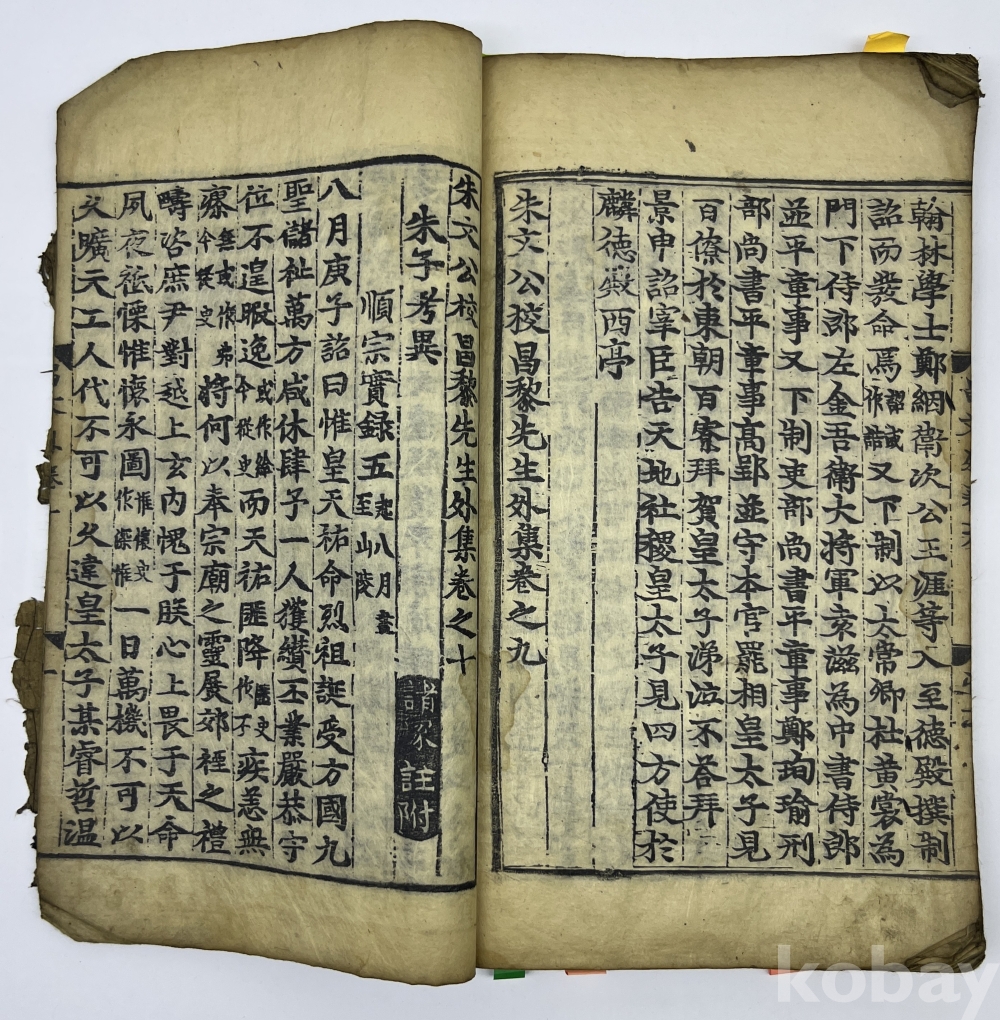 翰林學士鄭絪衛次公王涯等入至德殿撰制
詔而發命焉詔或作誥又下制以太常卿杜黃裳為
門下侍郎左金吾衛大將軍袁滋為中書侍郎
並平章事又下制吏部尚書平章事鄭珣瑜刑
部尚書平章事高郢並守本官罷相皇太子見
百僚於東朝百寮拜賀皇太子涕泣不荅拜
景申詔宰臣告天地社稷皇太子見四方使於
麟德殿西亭
朱文公校昌黎先生外集卷之九
朱文公校昌黎先生外集卷之十
朱子考異 諸家註附
順宗實録五起八月盡至山陵
八月庚子詔曰惟皇天祐命烈祖誕受方國九
聖儲祉萬方咸休肆予一人獲纘丕業嚴恭守
位不遑暇逸或作今從史而天祐匪降匪史作不疾恙無
瘳無或作弗今從史將何以奉宗廟之靈展郊禋之禮
疇咨庶尹對越上玄内愧于朕心上畏于天命
夙夜祗慄惟懷永圖惟懷史作深惟一日萬機不可以
久曠天工人代不可以久違皇太子某睿哲温
kobay